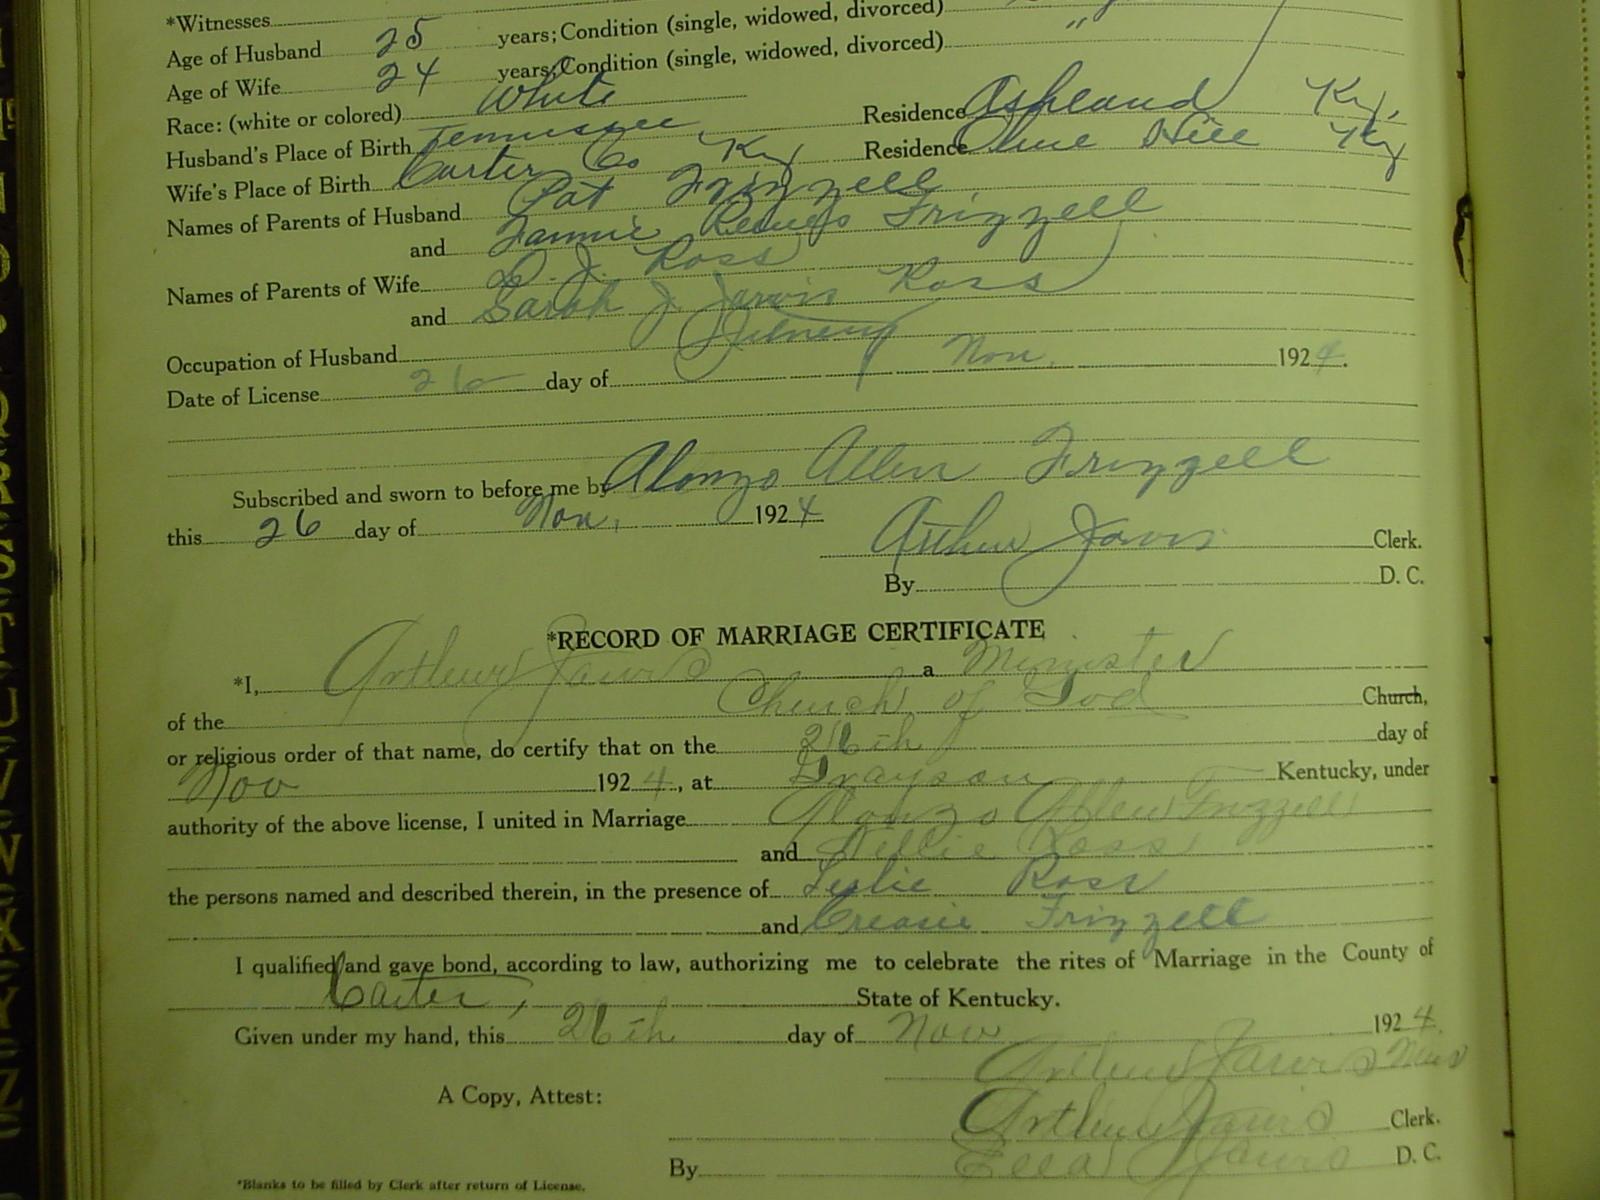 *Witnesses
Age of Husband 25 years; Condition (single, widowed, divorced)
Age of Wife 24 years; Condition (single, widowed, divorced) "
Race: (white or colored) White
Husband's Place of Birth Tennessee, Residence Ashland Ky,
Wife's Place of Birth Carter Co Ky Residence Olive Hill Ky
Names of Parents of Husband Pat Frizzell
and Fannie Frizzell
Names of Parents of Wife D. J. Ross
and Sarah J Jarvis Ross
Occupation of Husband
Date of License 26 day of Nov. 1924.
Subscribed and sworn to before me by Alonzo Allen Frizzell
this 26 day of Nov, 1924
Arthur Jarvis Clerk.
By D. C.
*RECORD OF MARRIAGE CERTIFICATE
*I, Arthur Jarvis a Minister
of the Church of God Church,
or religious order of that name, do certify that on the 26th day of
Nov 1924, at Grayson Kentucky, under
authority of the above license, I united in Marriage Alonzo Allen Frizzell
and Nellie Ross
the persons named and described therein, in the presence of Leslie Ross
and Creasie Frizzell
I qualified and gave bond, according to law, authorizing me to celebrate the rites of Marriage in the County of
Carter, State of Kentucky.
Given under my hand, this 26th day of Nov 1924.
Arthur Jarvis Min
A Copy, Attest:
Arthur Jarvis Clerk.
By Ella Jarvis D. C.
*Blanks to be filled by Clerk after return of License.